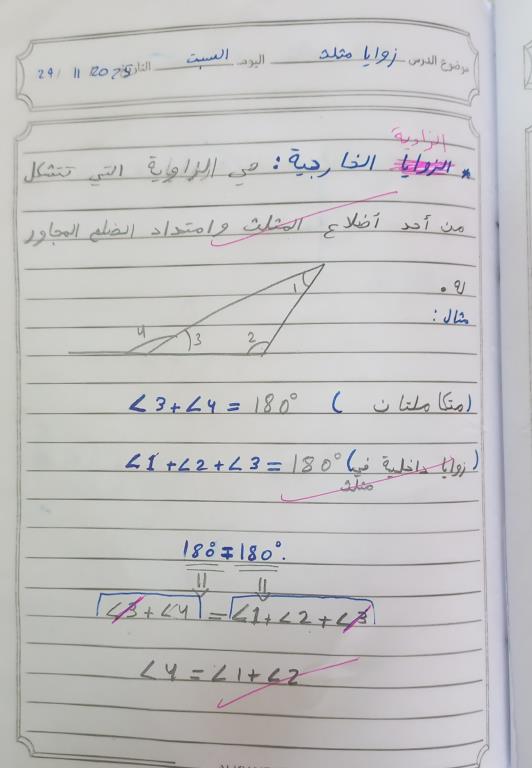 موضوع الدرس زوايا مثلث اليوم السبت التاريخ 29/ 11 /2025
الزاوية
* الزوايا الخارجية : هي الزاوية التي تتشكل
من أحد أضلاع المثلث وامتداد الضلع المجاور
له .
مثال :
1
4 3 2
∠3 + ∠4 = 180° (متكاملتان)
∠1 + ∠2 + ∠3 = 180° (زوايا داخلية في
مثلث)
180° = 180°.
∠3 + ∠4 = ∠1 + ∠2 + ∠3
∠4 = ∠1 + ∠2